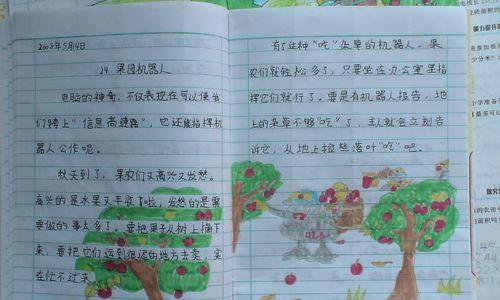 2008年5月14日
24.果园机器人
电脑的神奇,不仅表现在可以使我
们跨上“信息高速路”,它还能指挥机
器人工作呢。
秋天到了,果农们又高兴又发愁。
高兴的是水果又丰收了啦,发愁的是需
要做的事太多了。要把果子从树上摘下
来,要把它们运到很远的地方去卖,实
在忙不过来。
有了这种“吃”杂草的机器人,果
农们就轻松多了,只要坐在办公室里指
挥它们就行了。要是有机器人报告,地
上的杂草不够“吃”了,主人就会立刻告
诉它,从地上捡些落叶“吃”吧。